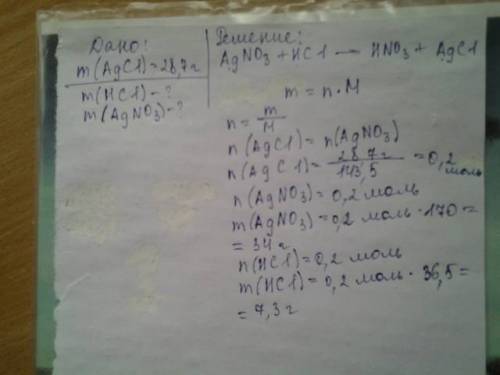 Дано:
m(AgCl)=28,7г
m(HCl)-?
m(AgNO₃)-?
Решение:
AgNO₃+HCl → HNO₃+AgCl
m=n·M
n=m/M
n(AgCl)=n(AgNO₃)
n(AgCl)=28,7г/143,5=0,2 моль
n(AgNO₃)=0,2 моль
m(AgNO₃)=0,2 моль·170=
=34 г
n(HCl)=0,2 моль
m(HCl)=0,2 моль·36,5=
=7,3 г